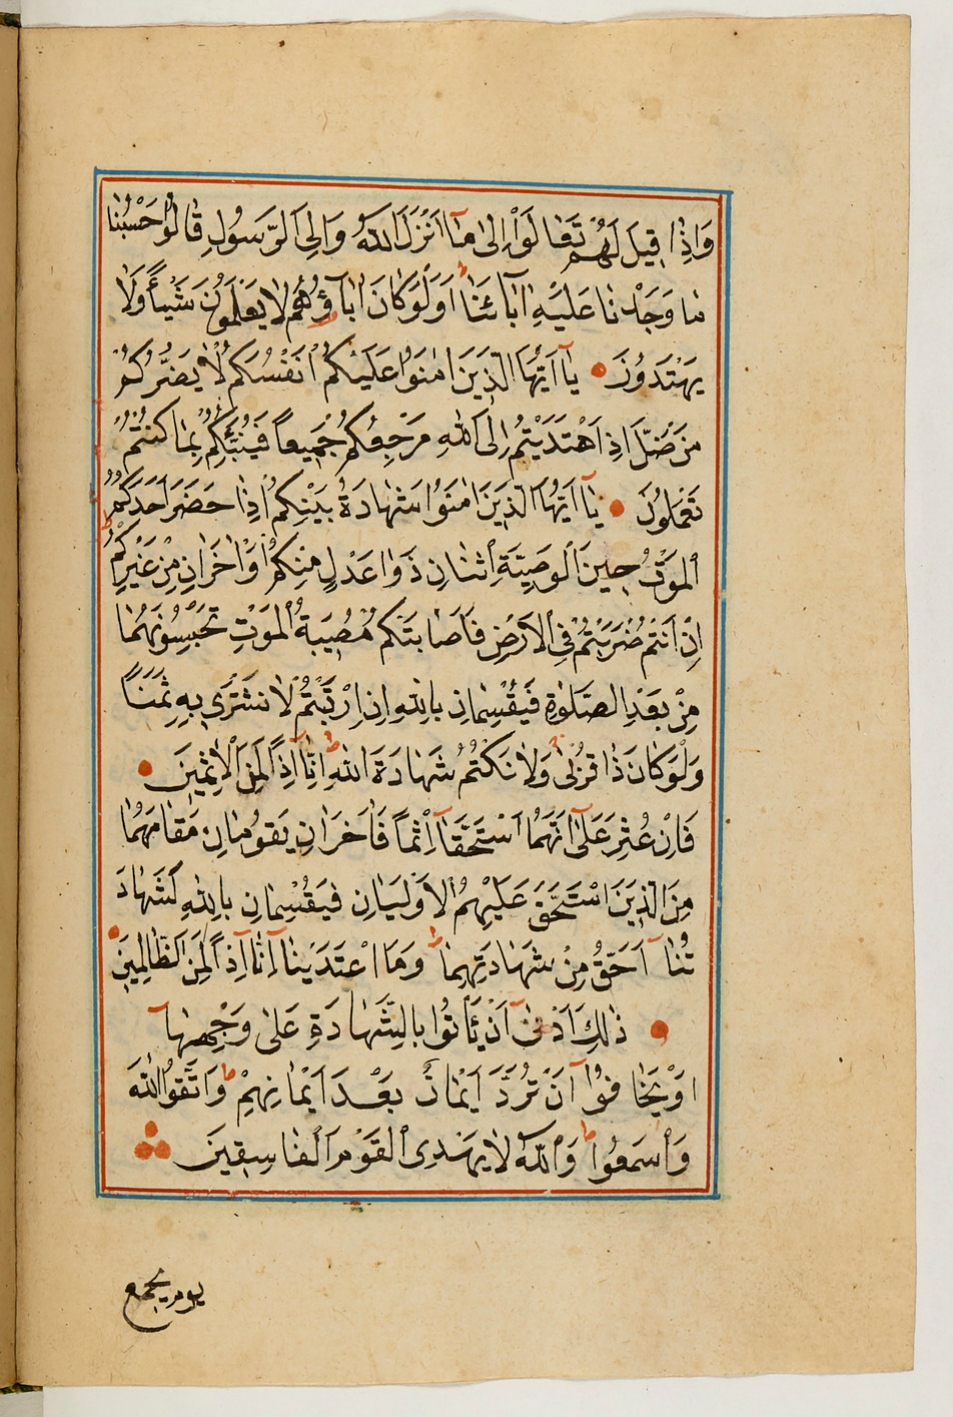 وَاِذَا قِيلَ لَهُمْ تَعَالَوْا اِلٰى مَٓا اَنْزَلَ اللّٰهُ وَاِلَى الرَّسُولِ قَالُوا حَسْبُنَا
مَا وَجَدْنَا عَلَيْهِ اٰبَٓائَنَا اَوَلَوْ كَانَ اٰبَٓاؤُهُمْ لَا يَعْلَمُونَ شَيْـًٔا وَلَا
يَهْتَدُونَ يَٓا اَيُّهَا الَّذِينَ اٰمَنُوا عَلَيْكُمْ اَنْفُسَكُمْ لَا يَضُرُّكُمْ
مَنْ ضَلَّ اِذَا اهْتَدَيْتُمْ اِلَى اللّٰهِ مَرْجِعُكُمْ جَمِيعاً فَيُنَبِّئُكُمْ بِمَا كُنْتُمْ
تَعْمَلُونَ يَٓا اَيُّهَا الَّذِينَ اٰمَنُوا شَهَادَةُ بَيْنِكُمْ اِذَا حَضَرَ اَحَدَكُمُ
الْمَوْتُ حِينَ الْوَصِيَّةِ اثْنَانِ ذَوَا عَدْلٍ مِنْكُمْ اَوْ اٰخَرَانِ مِنْ غَيْرِكُمْ
اِنْ اَنْتُمْ ضَرَبْتُمْ فِي الْاَرْضِ فَاَصَابَتْكُمْ مُصِيبَةُ الْمَوْتِ تَحْبِسُونَهُمَا
مِنْ بَعْدِ الصَّلٰوةِ فَيُقْسِمَانِ بِاللّٰهِ اِنِ ارْتَبْتُمْ لَا نَشْتَرِي بِهِ ثَمَنًا
وَلَوْ كَانَ ذَا قُرْبٰى وَلَا نَكْتُمُ شَهَادَةَ اللّٰهِ اِنَّٓا اِذًا لَمِنَ الْاٰثِمِينَ
فَاِنْ عُثِرَ عَلٰٓى اَنَّهُمَا اسْتَحَقَّٓا اِثْماً فَاٰخَرَانِ يَقُومَانِ مَقَامَهُمَا
مِنَ الَّذِينَ اسْتَحَقَّ عَلَيْهِمُ الْاَوْلَيَانِ فَيُقْسِمَانِ بِاللّٰهِ لَشَهَادَ
تُنَٓا اَحَقُّ مِنْ شَهَادَتِهِمَا وَمَا اعْتَدَيْنَٓا اِنَّٓا اِذًا لَمِنَ الظَّالِمِينَ
ذٰلِكَ اَدْنٰٓى اَنْ يَأْتُوا بِالشَّهَادَةِ عَلٰى وَجْهِهَٓا
اَوْ يَخَافُٓوا اَنْ تُرَدَّ اَيْمَانٌ بَعْدَ اَيْمَانِهِمْ وَاتَّقُوا اللّٰهَ
وَاسْمَعُوا وَاللّٰهُ لَا يَهْدِي الْقَوْمَ الْفَاسِقِينَ
يوم يجمع